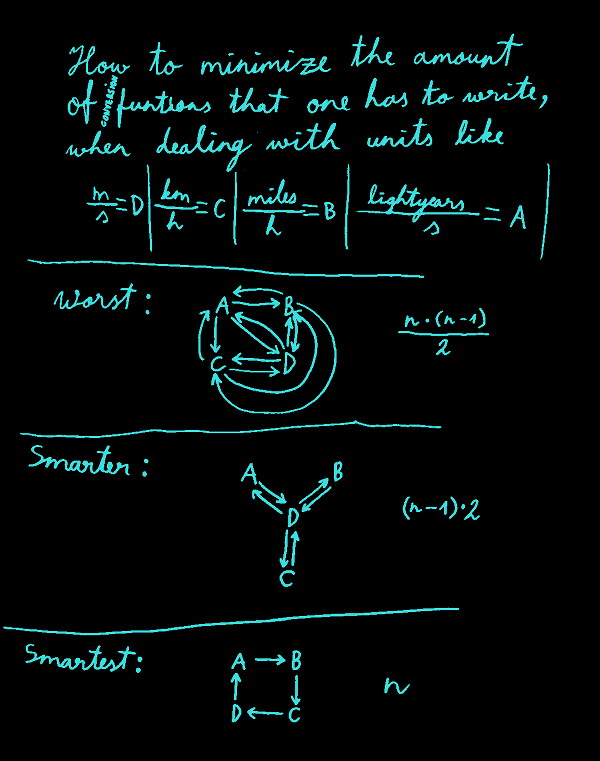 How to minimize the amount
of CONVERSION funtions that one has to write,
when dealing with units like
m/s = D | km/h = C | miles/h = B | lightyears/s = A |
Worst:
A B
C D
n·(n-1)/2
Smarter:
A B
D
C
(n-1)·2
Smartest:
A B
D C
n